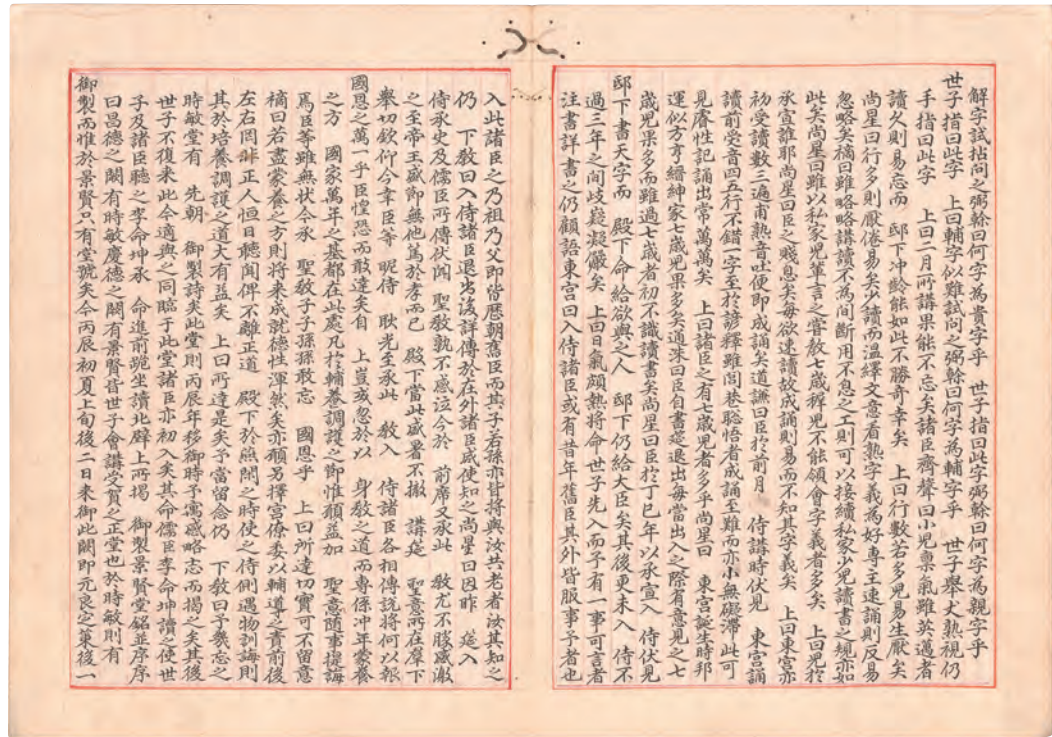 解字試拈問之弼榦曰何字為貴字乎　世子指曰此字弼榦曰何字為親字乎
世子指曰此字　上曰輔字似難試問之弼榦曰何字為輔字乎　世子舉犬熟視仍
手指曰此字　上曰二月所講果能不忘矣諸臣齊聲曰小兒稟氣雖英邁者
讀久則易忘而　邸下冲齡能如此不勝奇幸矣　上曰行數若多兒易生厭矣
尚星曰行多則厭倦易矣少讀而溫繹文意看熟字義為好專主速誦則反易
忽略矣樀曰雖略略講讀不為間斷用不息之工則可以接續私家少兒讀書之規亦如
此矣尚星曰雖以私家兒輩言之嘗教七歲稺兒不能領會字義者多矣　上曰兒於
承宣誰耶尚星曰臣之賤息矣每欲速讀故成誦則易而不知其字義矣　上曰東宮亦
初受讀數三遍甫熟音吐便即成誦矣道謙曰臣於前月　侍講時伏見　東宮誦
讀前受音四五行不錯一字至於諺釋雖閭巷聡悟者成誦至難而亦小無礙滯此可
見睿性記誦出常萬萬矣　上曰諸臣之有七歲兒者多乎尚星曰　東宮誕生時邦
運似方亨縉紳家七歲兒果多多矣通洙曰臣自書筵退出每當出入之際有意見之七
歲兒果多多而雖過七歲者初不識讀書矣尚星曰臣於丁巳年以承宣入　侍伏見
邸下書天字而　殿下命給欲與之人　邸下仍給大臣矣其後更未入　侍不
過三年之間岐嶷凝儼矣　上曰日氣頗熱將命　世子先入而予有一事可言者
注書詳書之仍顧語東宮曰入侍諸臣或有昔年舊臣其外皆服事予者也
入此諸臣之乃祖乃父即皆歷朝舊臣而其子若孫亦皆將與汝共老者汝其知之
仍　下教曰入侍諸臣退出後詳傳於在外諸臣咸使知之尚星曰因昨　筵入
侍承史及儒臣所傳伏聞　聖教孰不感泣今於　前席又承此　教尤不勝感激
之至帝王盛節無他篤於孝而已　殿下當此盛暑不撤　講筵　聖意所在羣下
舉切欽仰今幸臣等　昵侍　耿光至承此　教入　侍諸臣各相傳説將何以報
國恩之萬一乎臣惶恐而敢達矣自　上豈或忽於以　身教之道而專係冲年蒙養
之方　國家萬年之基都在此處凡於輔養調護之節惟願益加　聖意随事提誨
焉臣等雖無状今承　聖教子子孫孫敢忘　國恩乎　上曰所達切實可不留意
樀曰若盡蒙養之方則將来成就德性渾然矣亦頫另擇宮僚委以輔導之責前後
左右罔非正人恒日聽聞俾不離正道　殿下於燕閒之時使之侍側遇物訓誨則
其於培養調護之道大有益矣　上曰所達是矣予當留念仍　下教曰予幾忘之
時敏堂有　先朝　御製詩矣此堂則丙辰年移御時予寓感略志而揭之矣其後
世子不復来此今適與之同臨于此堂諸臣亦初入矣其命儒臣李命坤讀之使世
子及諸臣聽之李命坤承　命進前跪坐讀北壁上所揭　御製景賢堂銘並序序
曰昌德之闕有時敏慶德之闕有景賢皆世子會講受賀之正堂也於時敏則有
御製而惟於景賢只有堂號矣今丙辰初夏上旬後二日来御此闕即元良定策後一